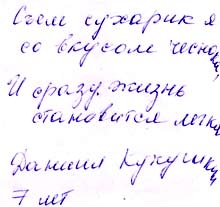 Съем сухарик я
со вкусом чеснока,
И сразу жизнь
становится легка
Даниил Кукушкин
7 лет